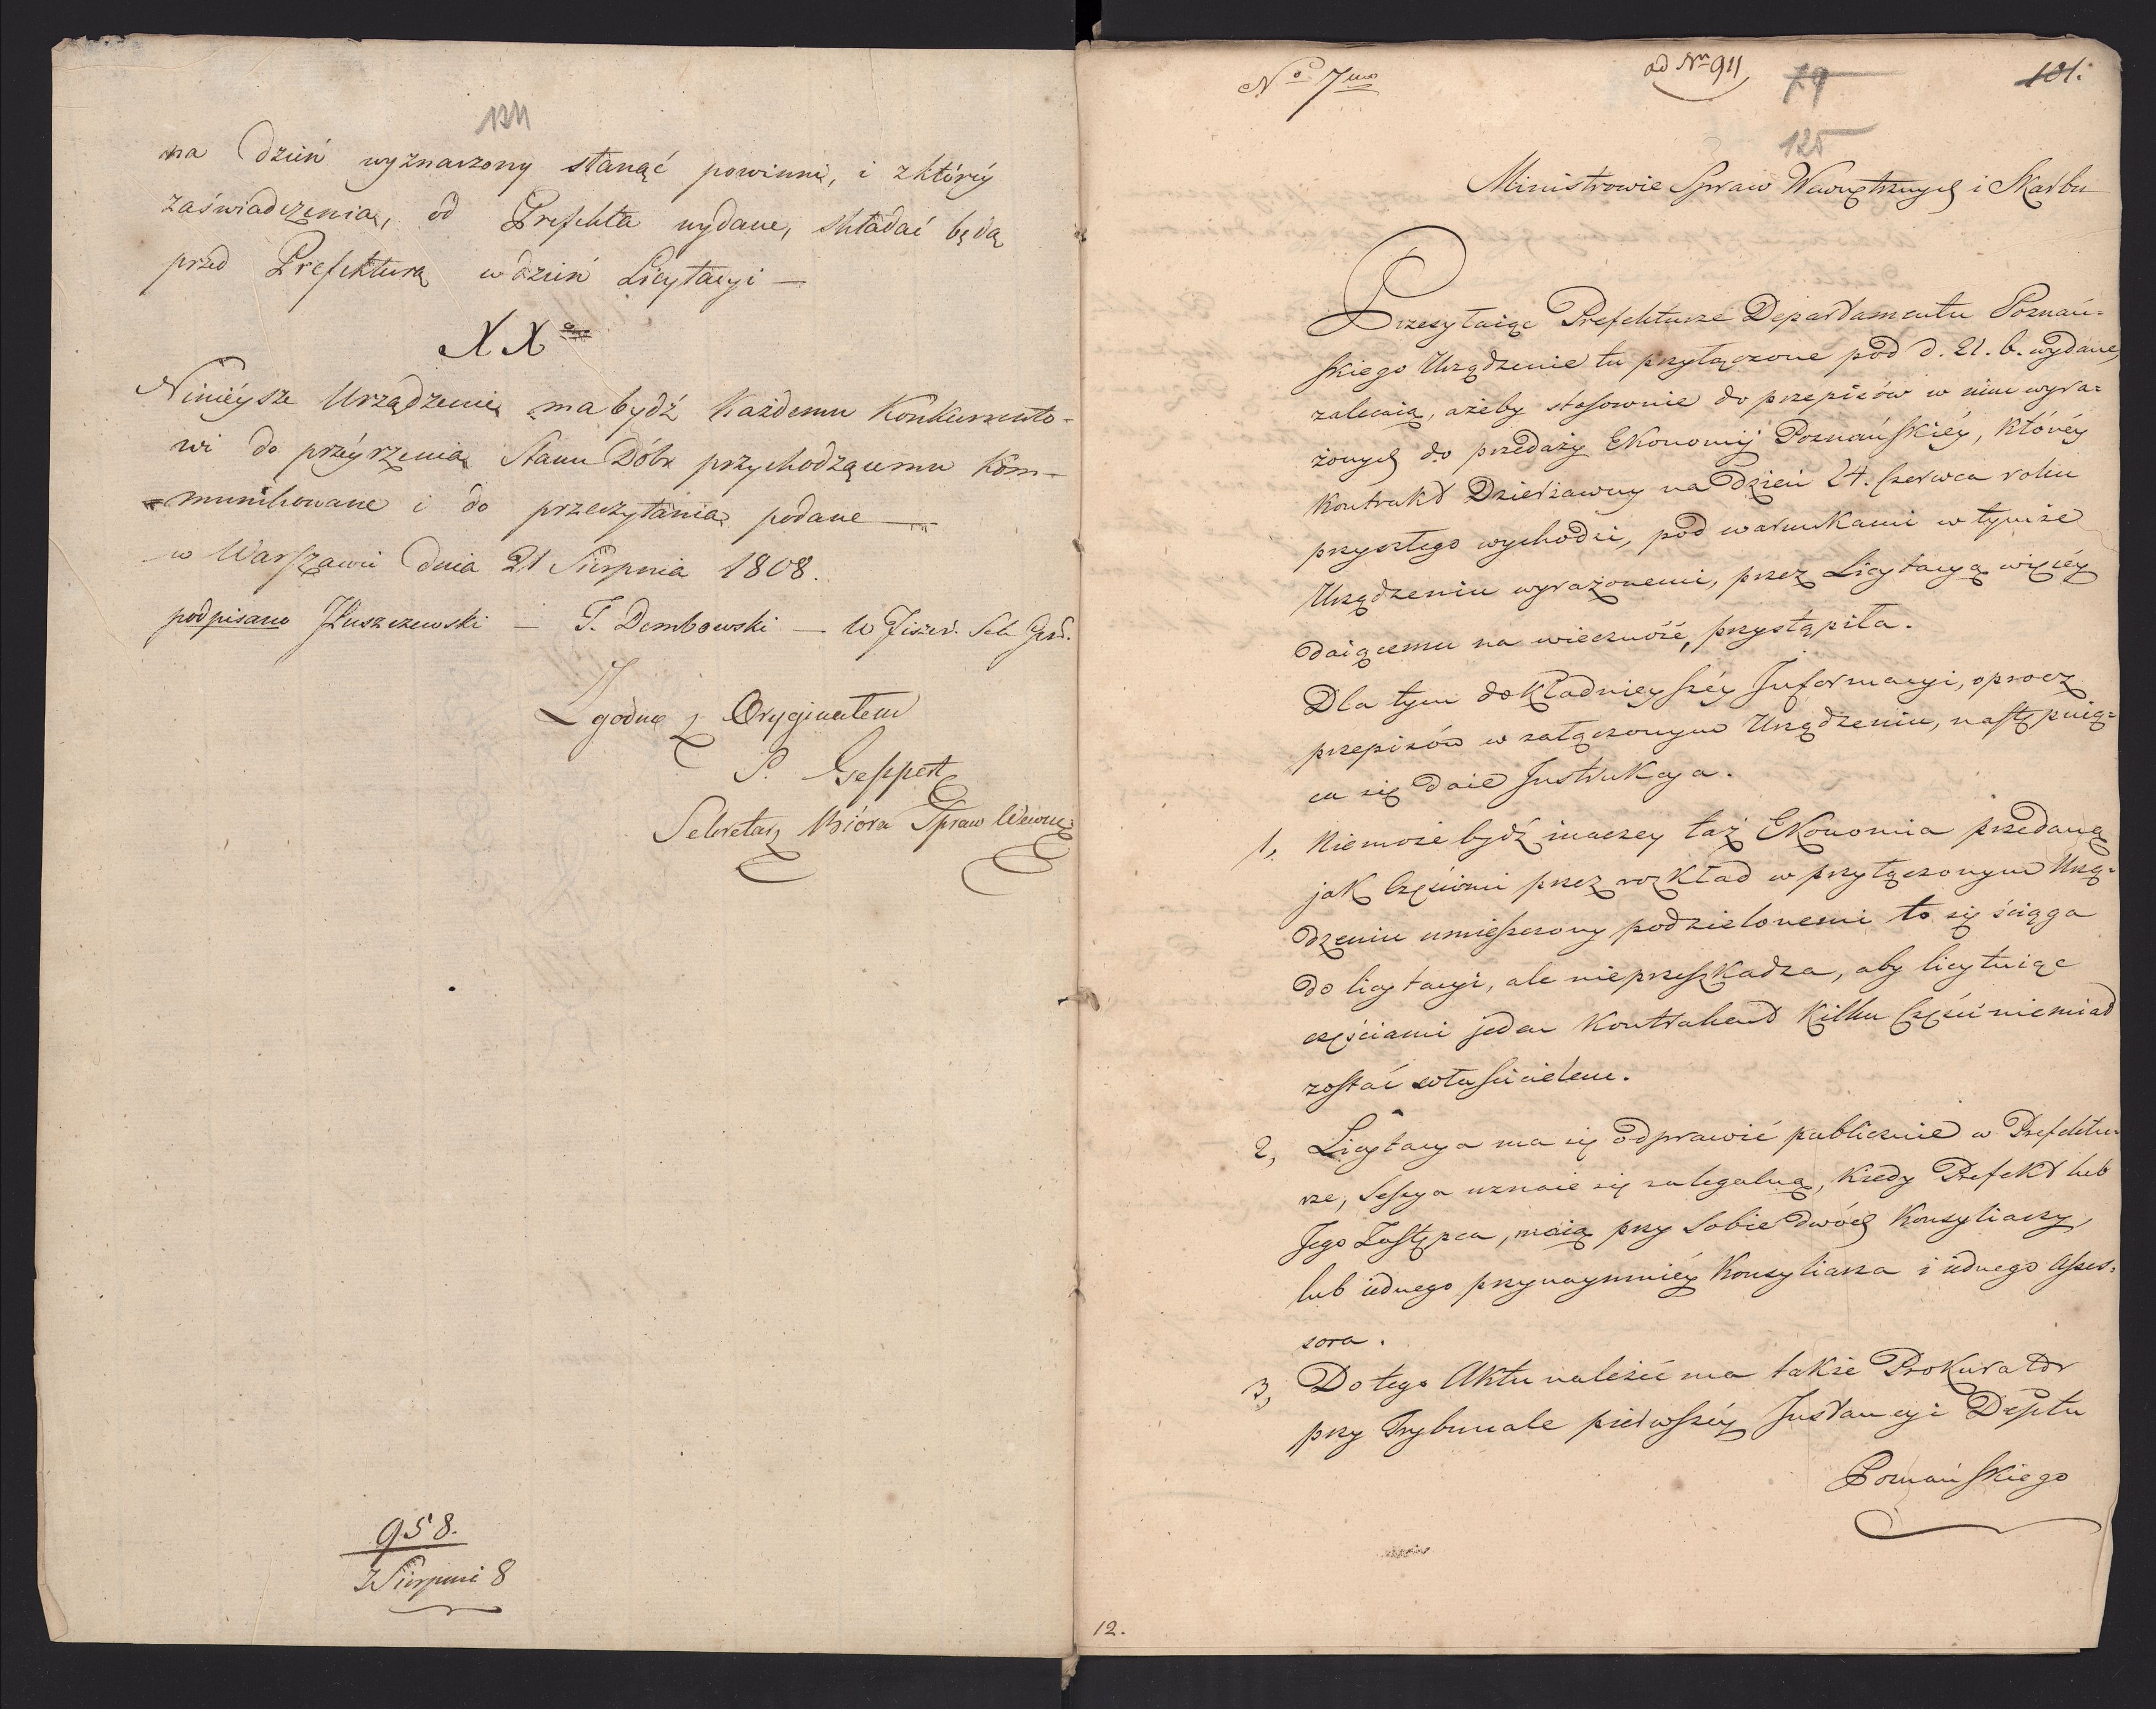 124
na dzień wyznaczony stanąć powinni, i z któréy
zaświadczenia, od Prefekta wydane, składać będą
przed Prefekturą w dzień Licytacyi —
XX
Ninieysze Urządzenie ma bydź każdemu Konkurrento-
wi do przéyrzenia Stanu Dóbr przychodzącemu kom-
munikowane i do przeczytania podane —
w Warszawie dnia 21 Sierpnia 1808.
podpisano JŁuszczewski — T. Dembowski — Sek
Zgodne z Oryginałem
P. Geppert
Sekretarz Bióra Spraw Wewnę:
958.
Sierpnia 8
No 7mo
ad Nr 911
79
101.
125
Ministrowie Spraw Wewnętrznych i Skarbu
Przesyłaiąc Prefekturze Departamentu Poznań-
skiego Urządzenie tu przyłączone pod d. 21. b. wydane,
zalecaią, ażeby stosownie do przepisów w nim wyra-
żonych do przedaży Ekonomij Poznańskiéy, któréy
Kontrakt Dzierżawny na Dzień 24. Czerwca roku
przyszłego wychodzi, pod warunkami w tymże
Urządzeniu wyrażonemi, przez Licytacyą więcéy
daiącemu na wieczność, przystąpiła.
Dla tym dokładnieyszéy Informacyi, oprocz
przepisów w załączonym Urządzeniu, następuią-
ca się daie Instrukcya.
1, Niemoże bydź inaczey taż Ekonomia przedaną
jak Częściami przez rozkład w przyłączonym Urzą-
dzeniu umieszczony podzielonemi to się ściąga
do licytacyi, ale nieprzeszkadza, aby licytuiąc
częściami jeden Kontrahent kilku Części niemiał
zostać właścicielem.
2, Licytacya ma się odprawić publicznie w Prefektu-
rze, Sessya uznaie się za legalną, kiedy Prefekt lub
Jego Zastępca, maią przy Sobie dwóch Konsyliarzy,
lub iednego przynaymniéy Konsyliarza i iednego Asses-
sora.
3, Do tego Aktu należeć ma także Prokurator
przy Trybunale pierwszéy Instancyi Deptu
Poznańskiego
12.